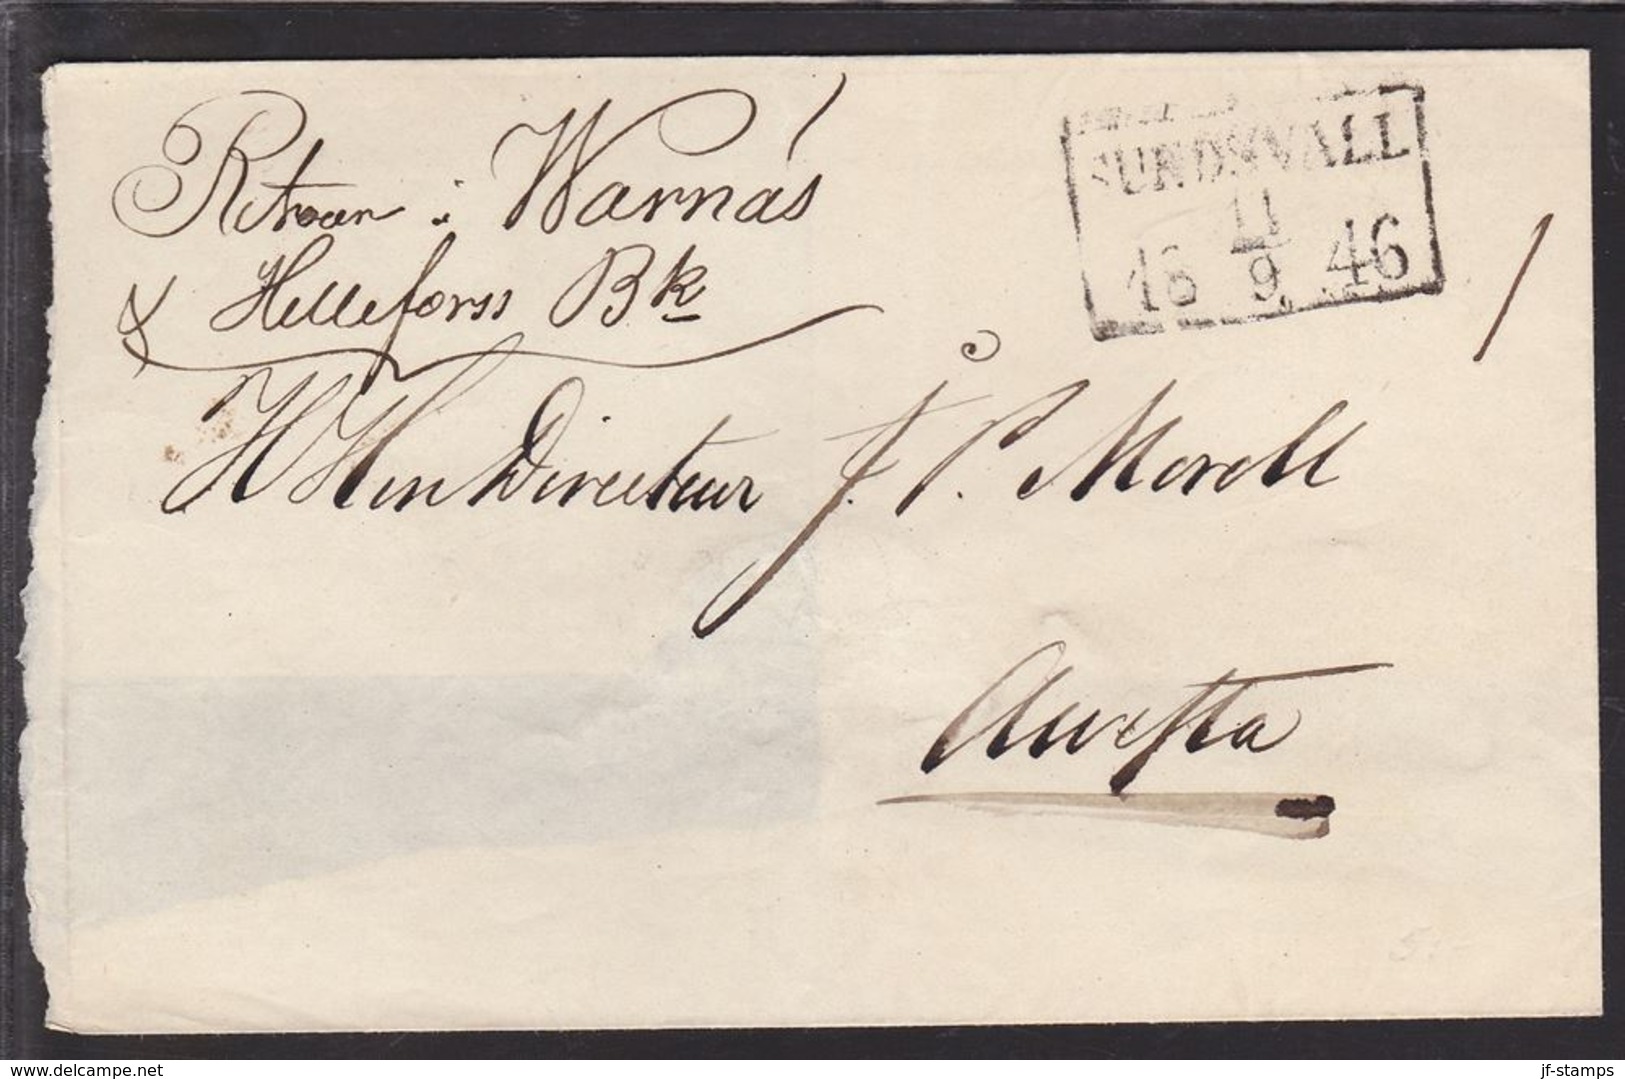 Retour : Warnäs
& Helleforss Bk
SUNDSVALL
11
18 9 46
H Herr Directeur J. P. Morell
Awesta
5:-
delcampe.net
jf-stamps